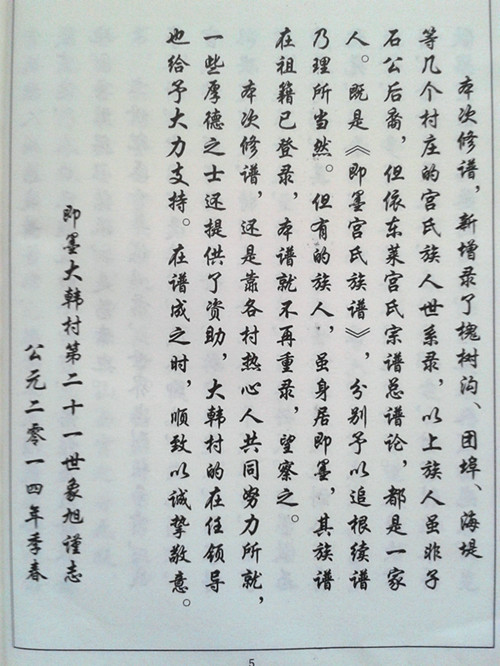 本次修谱，新增录了槐树沟、团埠、海堤
等几个村庄的宫氏族人世系录，以上族人虽非子
石公后裔，但依东莱宫氏宗谱总谱论，都是一家
人。既是《即墨宫氏族谱》，分别予以追根续谱
乃理所当然。但有的族人，虽身居即墨，其族谱
在祖籍已登录，本谱就不再重录，望察之。
本次修谱，还是靠各村热心人共同努力所就，
一些厚德之士还提供了资助，大韩村的在任领导
也给予大力支持。在谱成之时，顺致以诚挚敬意。
即墨大韩村第二十一世象旭谨志
公元二零一四年季春
5